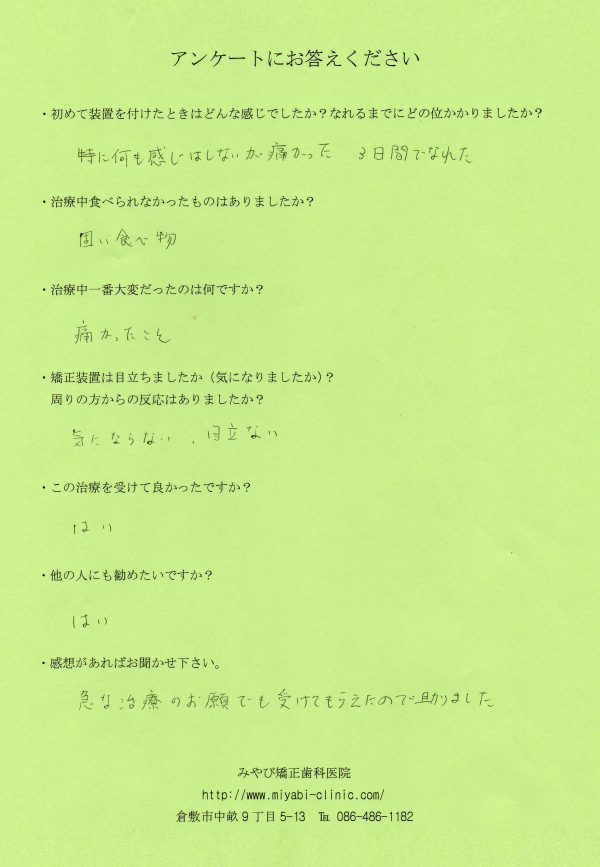 アンケートにお答えください
・初めて装置を付けたときはどんな感じでしたか？なれるまでにどの位かかりましたか？
特に何も感じはしないが痛かった 3日間でなれた
・治療中食べられなかったものはありましたか？
固い食べ物
・治療中一番大変だったのは何ですか？
痛かったこと
・矯正装置は目立ちましたか（気になりましたか）？
周りの方からの反応はありましたか？
気にならない、目立ない
・この治療を受けて良かったですか？
はい
・他の人にも勧めたいですか？
はい
・感想があればお聞かせ下さい。
急な治療のお願でも受けてもらえたので助りました
みやび矯正歯科医院
http://www.miyabi-clinic.com/
倉敷市中畝９丁目5-13 ℡ 086-486-1182